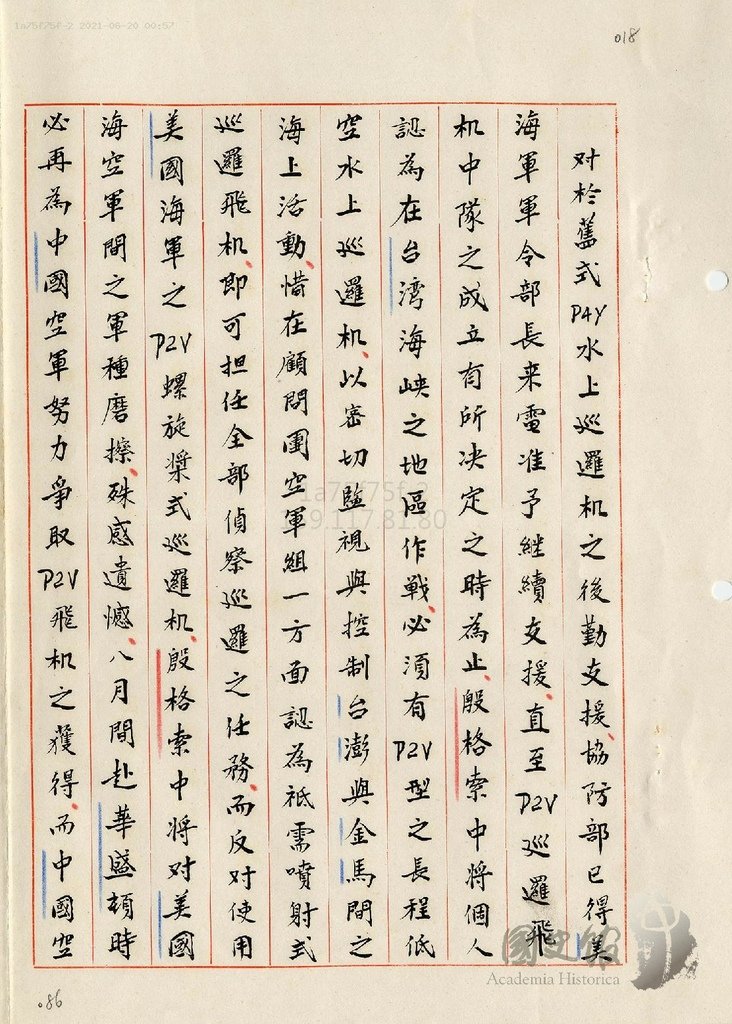 1a75f75f-2 2021-06-20 00:57
018
对於舊式P4Y水上巡邏机之後勤支援、協防部已得美
海軍軍令部長来電准予継續支援、直至P2V巡邏飛
机中隊之成立有所决定之時為止、殷格索中将個人
認為在台湾海峡之地區作戰、必須有P2V型之長程低
空水上巡邏机、以密切監視與控制台澎與金馬間之
海上活動、惜在顧問團空軍組一方面認為祇需噴射式
巡邏飛机、即可担任全部偵察巡邏之任務、而反对使用
美國海軍之P2V螺旋槳式巡邏机、殷格索中将对美國
海空軍間之軍種磨擦、殊感遺憾、八月間赴華盛頓時
必再為中國空軍努力爭取P2V飛机之獲得、而中國空
1a75f75f-2
国史館
Academia Historica
086